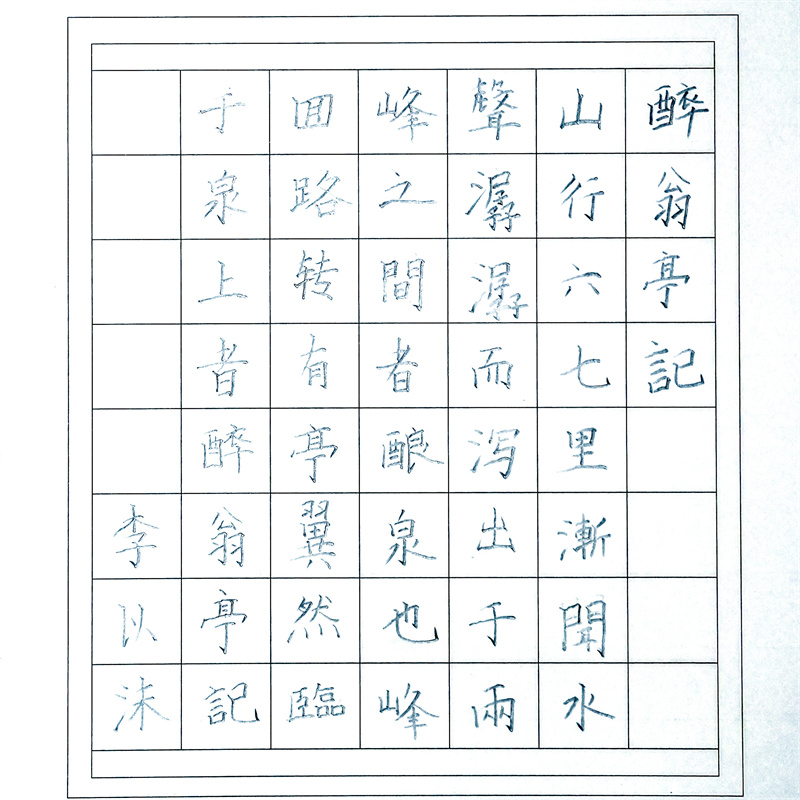 醉翁亭記
山行六七里漸聞水
聲潺潺而泻出于兩
峰之間者酿泉也峰
囬路转有亭翼然臨
于泉上者醉翁亭記
李以沫